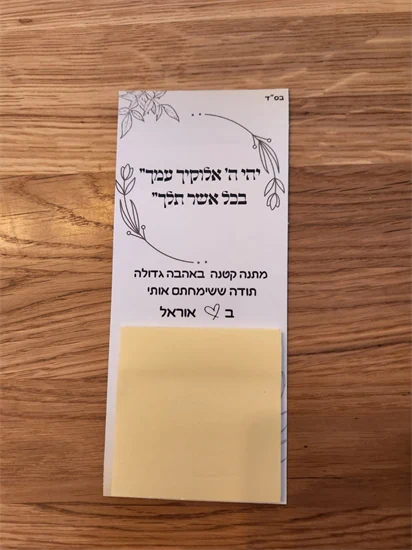 בס"ד
יהי ה' אלוקיך עמך"
בכל אשר תלך"
מתנה קטנה באהבה גדולה
תודה ששימחתם אותי
ב ♡ אוראל